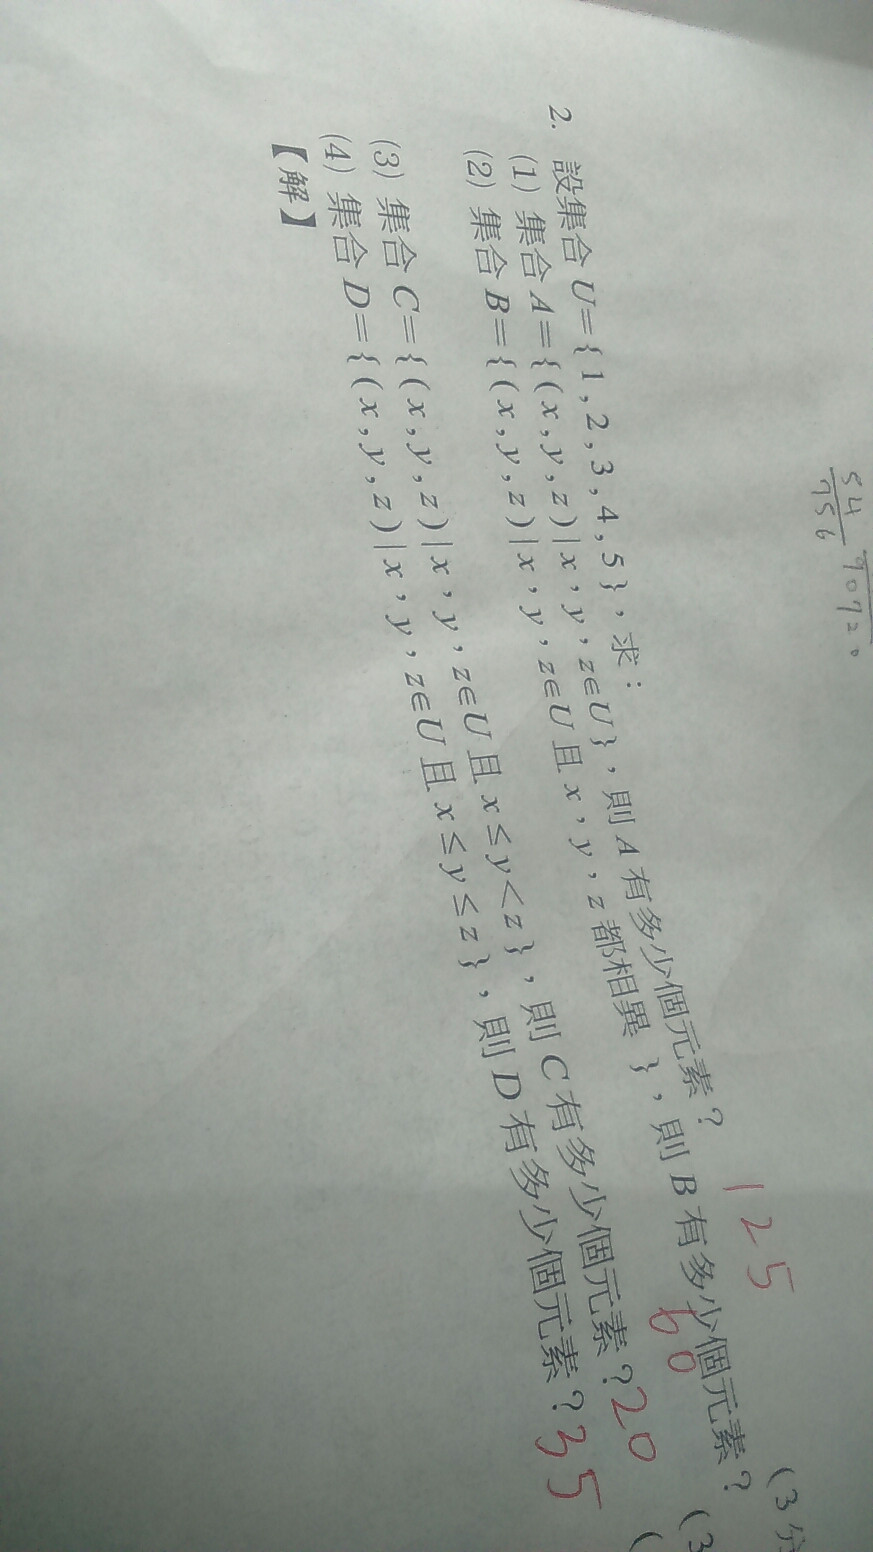 54
756
90720
2. 設集合 U={1,2,3,4,5}，求：
(1) 集合 A={(x,y,z)|x，y，z∈U}，則 A 有多少個元素？ 125 (3分
(2) 集合 B={(x,y,z)|x，y，z∈U 且 x，y，z 都相異 }，則 B 有多少個元素？ 60 (3
(3) 集合 C={(x,y,z)|x，y，z∈U 且 x≤y<z}，則 C 有多少個元素？20 (
(4) 集合 D={(x,y,z)|x，y，z∈U 且 x≤y≤z}，則 D 有多少個元素？35
【解】